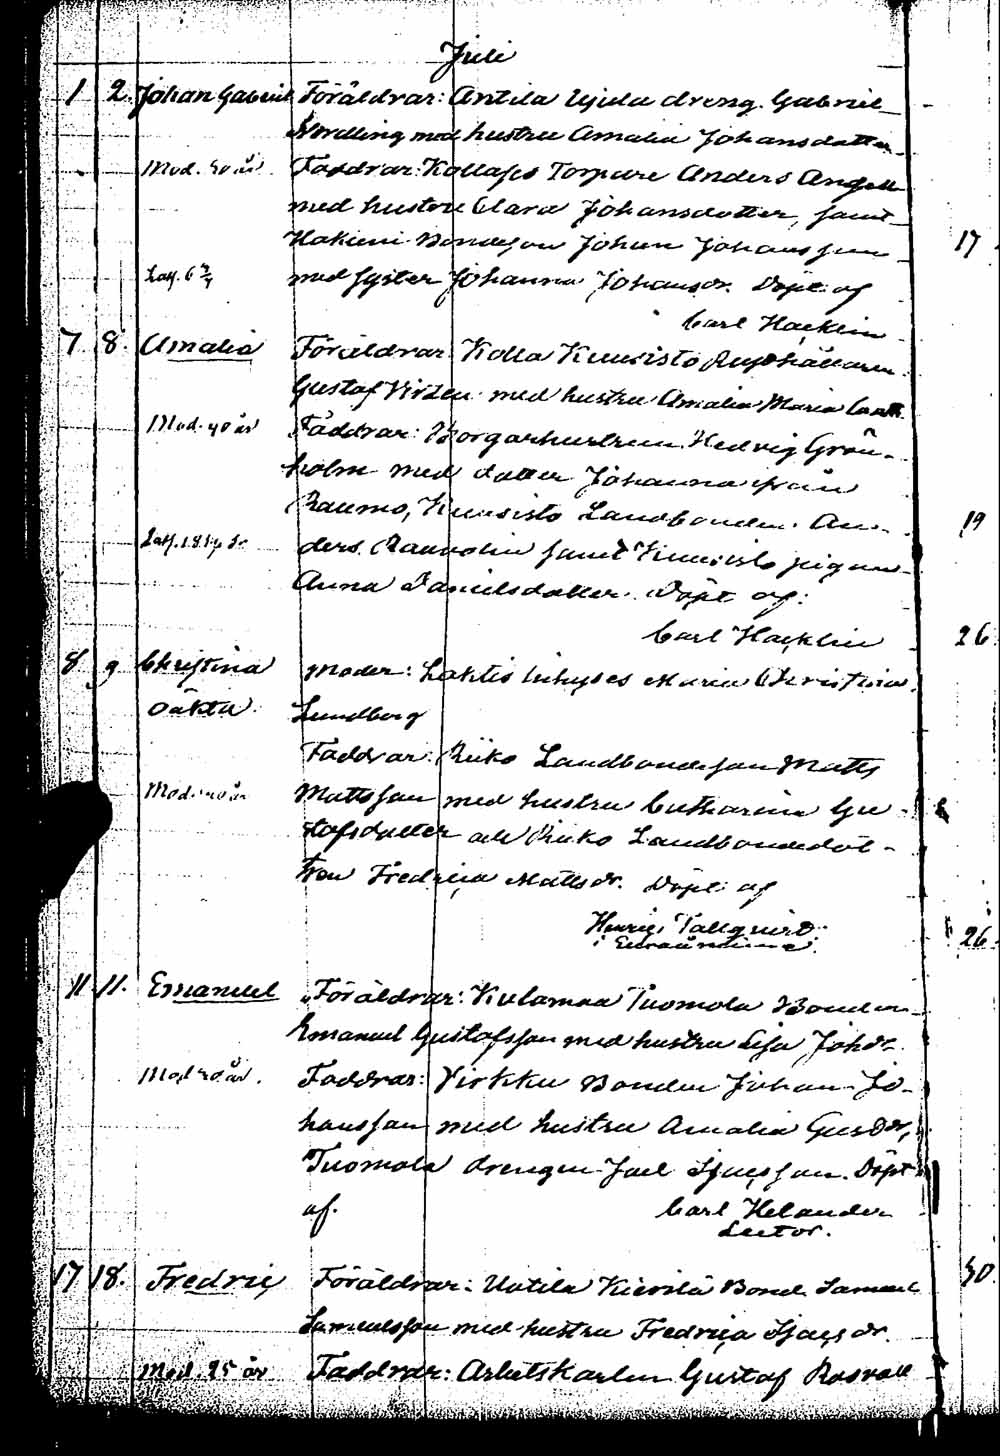 Juli
1 2. Johan Gabriel Föräldrar: Antila Ujula dreng Gabriel
Nordling med hustru Amalia Johansdotter
Mod. 40 år Faddrar: Kollaſes Torpare Anders
med hustru Clara Johansdotter, samt
Bondeſon Johan Johansſon
med ſyster Johanna Johansdr. Döpt af
Carl Hacklin
7 8. Amalia Föräldrar: Kolla Kuusisto
Gustaf Virzen med hustru Amalia Maria
Mod. 40 år Faddrar: Borgarhustrun Hedvig Grön-
holm med dotter Johanna från
Raumo, Kuusisto Landbonden An-
ders samt Kuusisto pigan
Anna Danielsdotter. Döpt af:
Carl Hacklin
8 9 Chriſtina Moder: Lahtis Inhyses Maria Christina
Oäkta Lundberg
Faddrar: Riiko Landbondeſon Matts
Mod. 40 år Mattsſon med hustru Catharina Gu-
stafsdotter och Riiko Landbondedot-
tren Fredrica Mattsdr. Döpt af
Henric Tallqvist
i Euraåminne
11 11. Emanuel Föräldrar: Kulamaa Tuomola Bonden
Emanuel Gustafsſon med hustru Liſa Johdr
Mod 40 år. Faddrar: Virkku Bonden Johan Jo-
hansſon med hustru Amalia Gusdr,
Tuomola drengen Joel Iſacsſon. Döpt
af. Carl Helander
Lector.
17 18. Fredric Föräldrar: Uotila Kivilä Bond. Samuel
Samuelsſon med hustru Fredrica Iſacsdr.
Mod. 25 år Faddrar: Arbetskarlen Gustaf Rosvall
17
19
26
26.
30